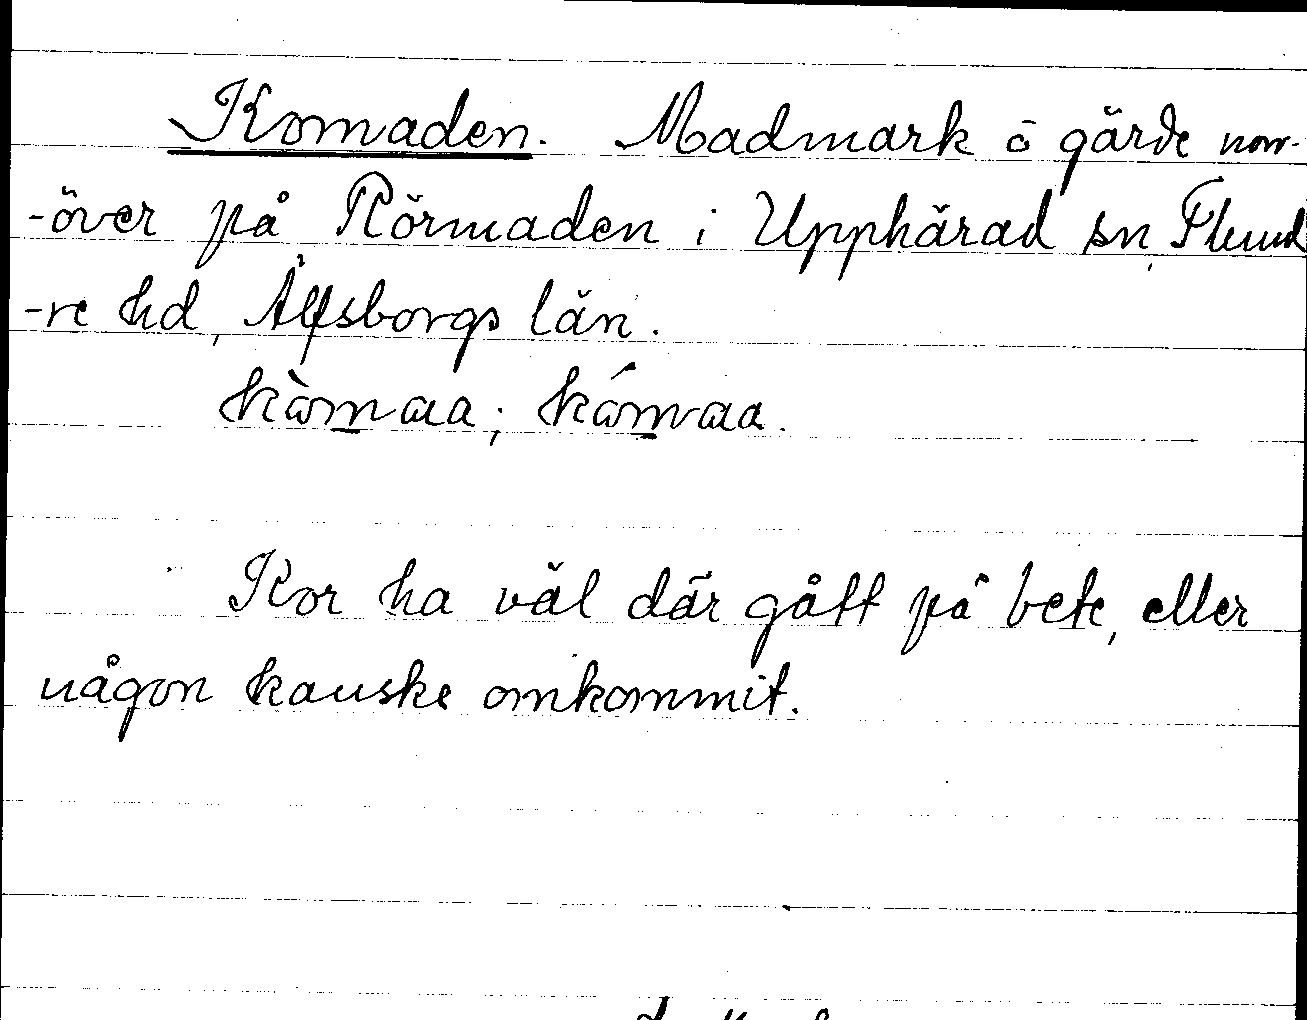 Komaden. Madmark ō gärde norr-
-över på Rörmaden i Upphärad sn, Flund
-re hd, Älfsborgs län.
kòmaa; kómaa.
Kor ha väl där gått på bete, eller
någon kanske omkommit.